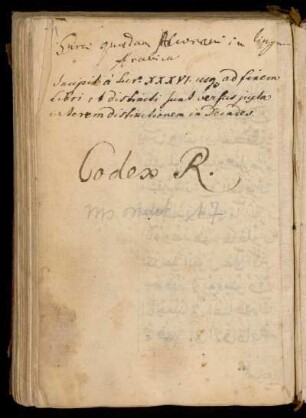 quædam Alcorani in lingua
Arabica
Incipit à Sur. XXXVI. usq. ad finem
Libri et distincti sunt versus juxta
veterem distinctionem in Decades.
Codex R.